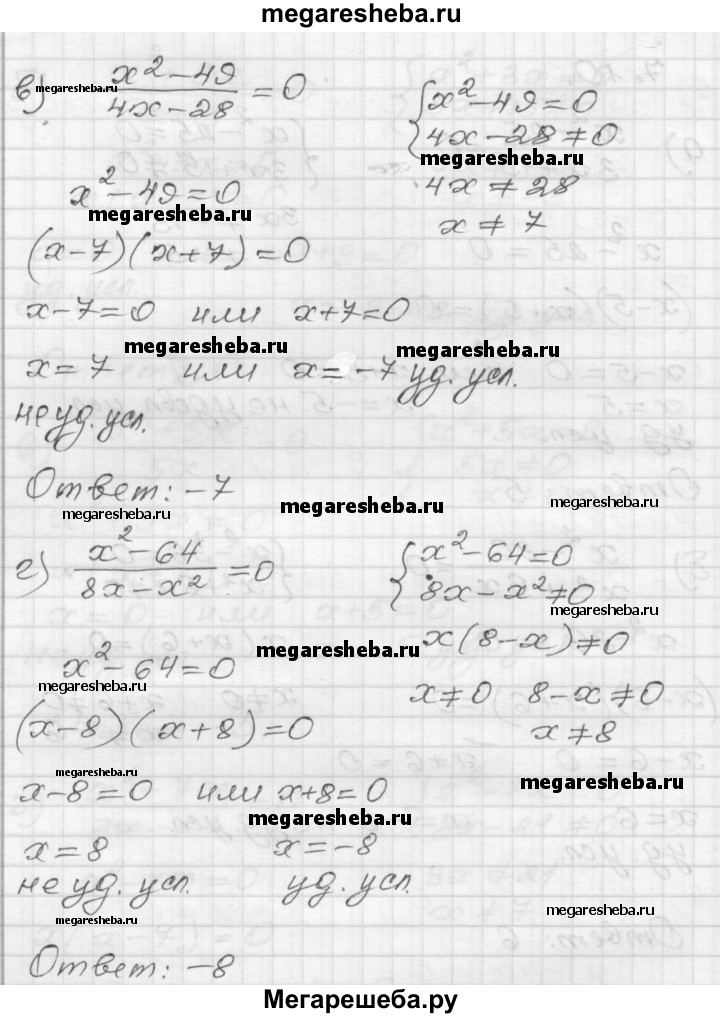 megaresheba.ru
в) x² - 49 / 4x - 28 = 0 { x² - 49 = 0
4x - 28 ≠ 0
megaresheba.ru
megaresheba.ru
x² - 49 = 0 4x ≠ 28
megaresheba.ru
x ≠ 7
(x - 7)(x + 7) = 0
x - 7 = 0 или x + 7 = 0
megaresheba.ru megaresheba.ru
x = 7 или x = -7 уд. усл.
не уд. усл.
Ответ: -7
megaresheba.ru megaresheba.ru megaresheba.ru
г) x² - 64 / 8x - x² = 0 { x² - 64 = 0
8x - x² ≠ 0
megaresheba.ru
x(8 - x) ≠ 0
megaresheba.ru
x² - 64 = 0
megaresheba.ru megaresheba.ru
x ≠ 0 8 - x ≠ 0
(x - 8)(x + 8) = 0 x ≠ 8
megaresheba.ru megaresheba.ru
x - 8 = 0 или x + 8 = 0
megaresheba.ru
x = 8 x = -8
не уд. усл. уд. усл.
megaresheba.ru megaresheba.ru
Ответ: -8
Мегарешеба.ру